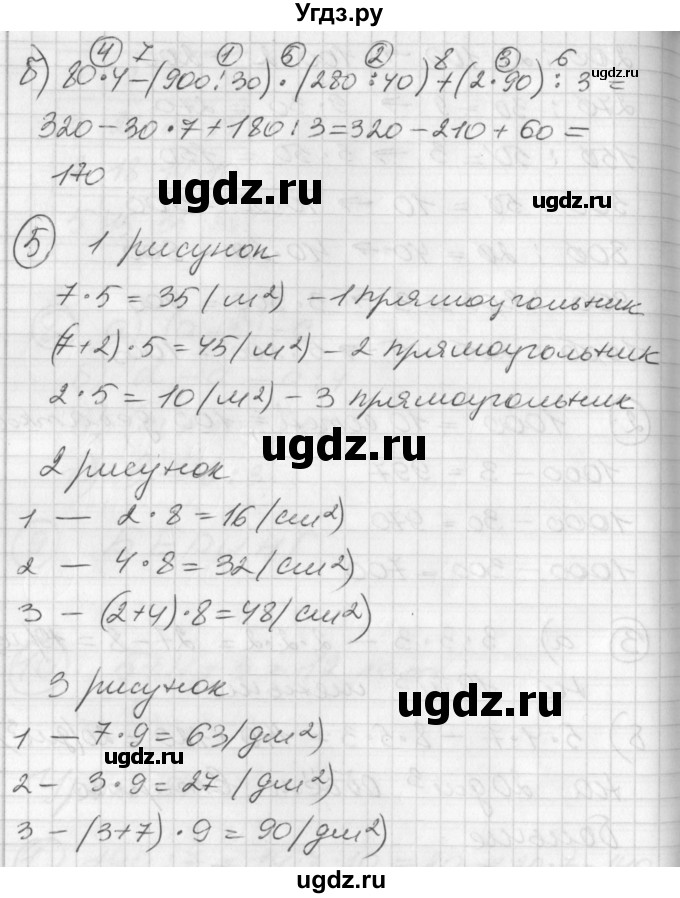 Угдз.ру
④ 7 ① ⑤ ② 8 ③ 6
б) 80·4-(900:30)·(280:40)+(2·90):3=
ugdz.ru
320-30·7+180:3=320-210+60=
170
ugdz.ru
ugdz.ru
⑤ 1 рисунок
7·5=35(м²) - 1 прямоугольник
(7+2)·5=45(м²) - 2 прямоугольник
2·5=10(м²) - 3 прямоугольник
ugdz.ru
2 рисунок
1 — 2·8=16(см²)
2 — 4·8=32(см²)
3 - (2+4)·8=48(см²)
3 рисунок
ugdz.ru
1 - 7·9=63(дм²)
ugdz.ru
2 - 3·9=27(дм²)
3 - (3+7)·9=90(дм²)
ugdz.ru
ugdz.ru